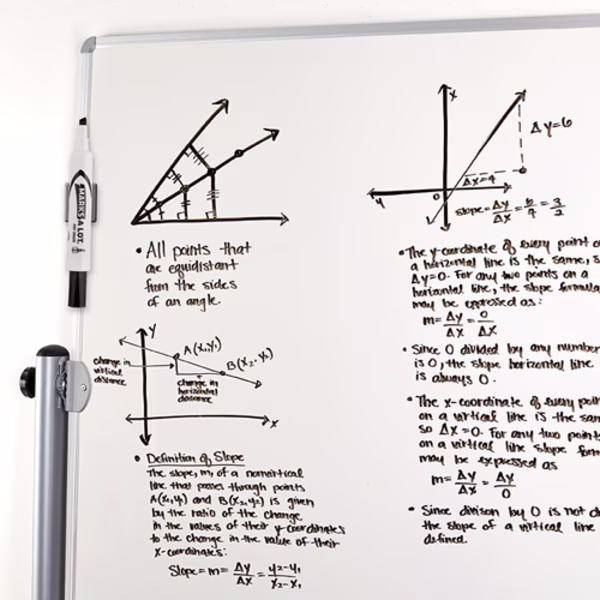 MARKS A LOT
• All points that
are equidistant
from the sides
of an angle.
y
A(x₁,y₁)
B(x₂,y₂)
change in
virtical
distance
change in
horizontal
distance
x
• Definition of Slope
The slope, m, of a nonvirtical
line that passes through points
A(x₁,y₁) and B(x₂,y₂) is given
by the ratio of the change
in the values of their y-coordinates
to the change in the value of their
x-coordinates:
Slope = m = Δy/Δx = y₂-y₁/x₂-x₁
x
Δy=6
Δx=4
y
0
slope = Δy/Δx = 6/4 = 3/2
• The y-coordinate of every point
a horizontal line is the same,
Δy=0. For any two points on a
horizontal line, the slope formula
may be expressed as:
m = Δy/Δx = 0/Δx
• Since 0 divided by any number
is 0, the slope horizontal line
is always 0.
• The x-coordinate of every
on a virtical line is the
so Δx=0. For any two points
on a virtical line slope
may be expressed as
m = Δy/Δx = Δy/0
• Since divison by 0 is not
the slope of a virtical line
defined.